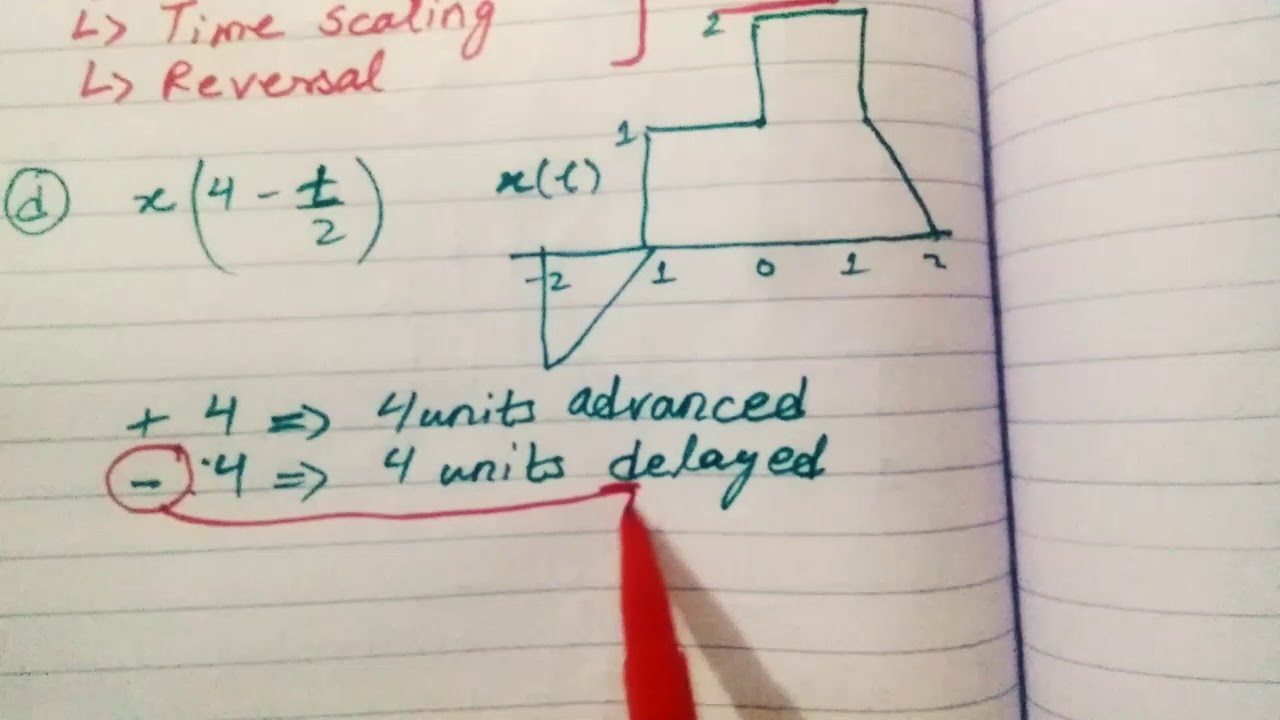 ↳ Time scaling
↳ Reversal
2
1
(d) x(4 - t/2)
x(t)
-2 1 0 1 2
+ 4 => 4 units advanced
- 4 => 4 units delayed